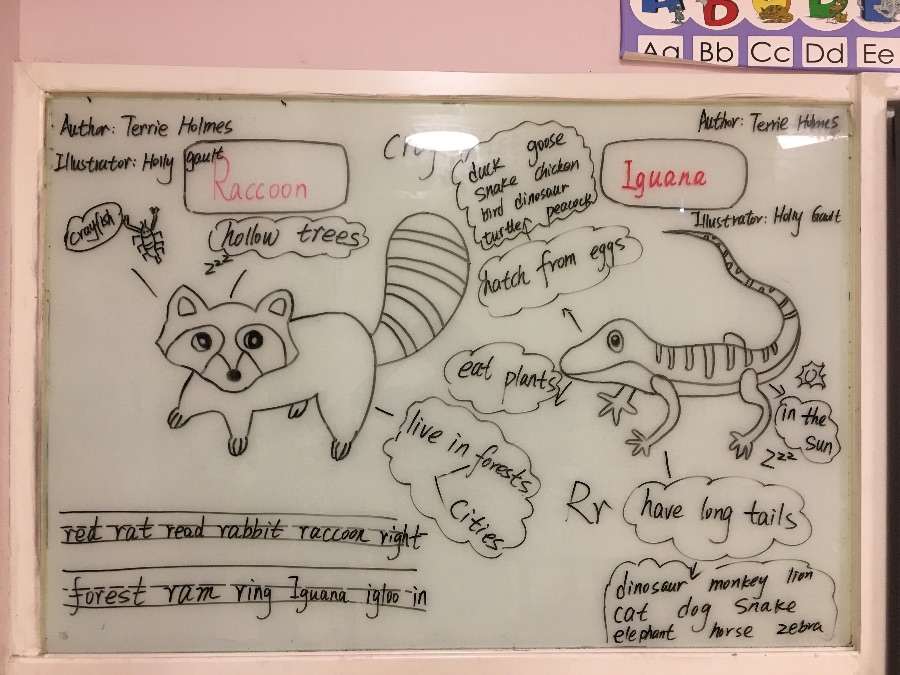 Aa Bb Cc Dd Ee
Author: Terrie Holmes
Illustrator: Holly gault
Raccoon
crayfish
hollow trees
zzz
live in forests
Cities
red rat read rabbit raccoon right
forest ram ring Iguana igloo in
Author: Terrie Holmes
Iguana
Illustrator: Holly Gault
duck goose
snake chicken
bird dinosaur
turtle peacock
hatch from eggs
eat plants
in the
Sun
zzz
Rr
have long tails
dinosaur monkey lion
cat dog snake
elephant horse zebra